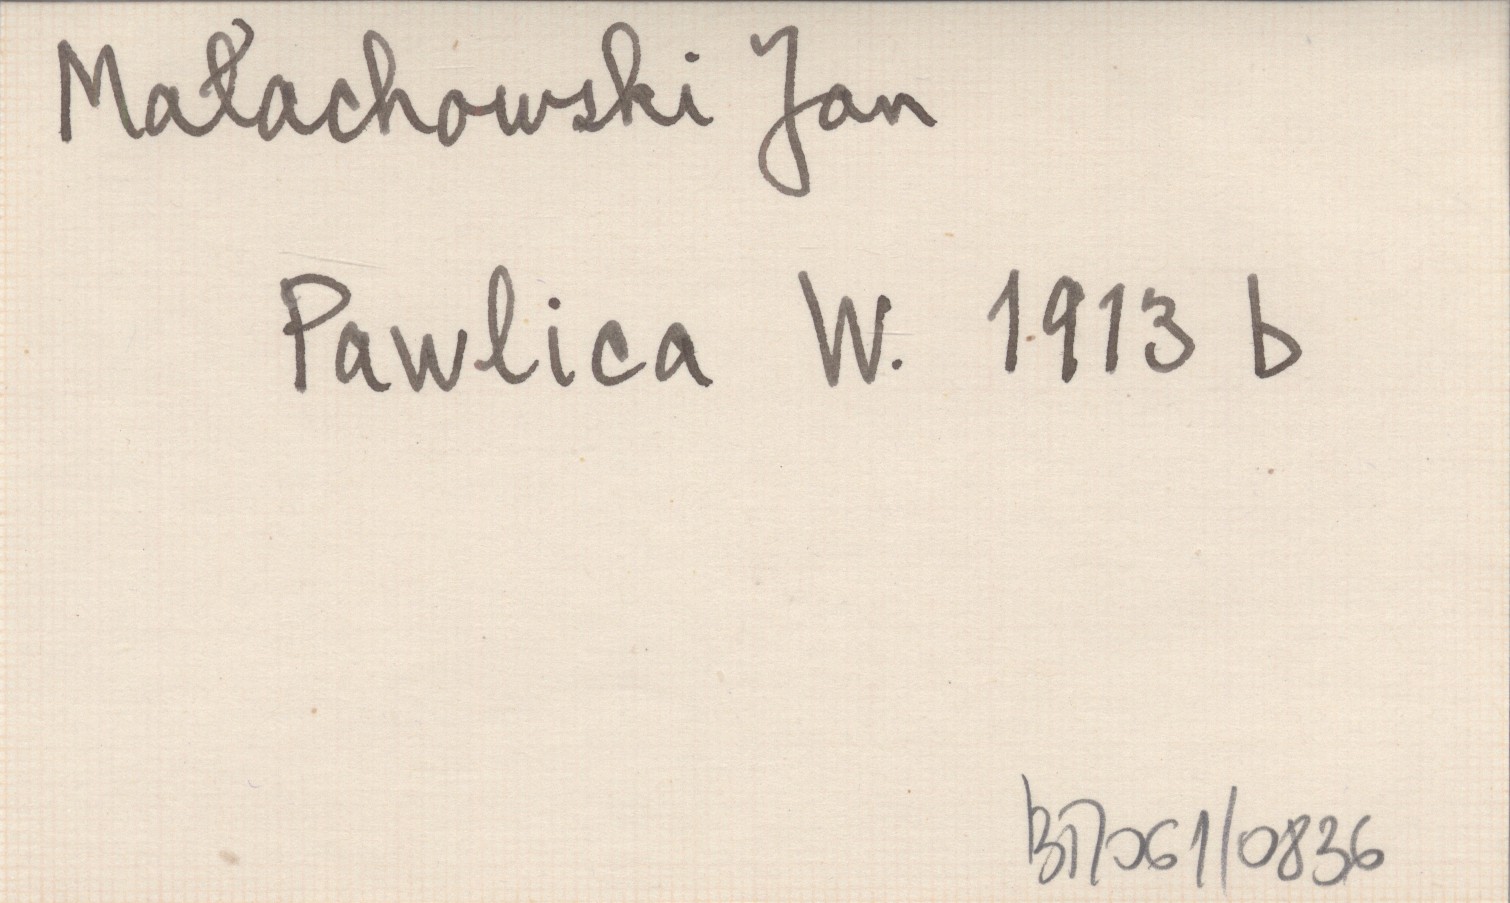 Małachowski Jan
Pawlica W. 1913 b
B17061/0836